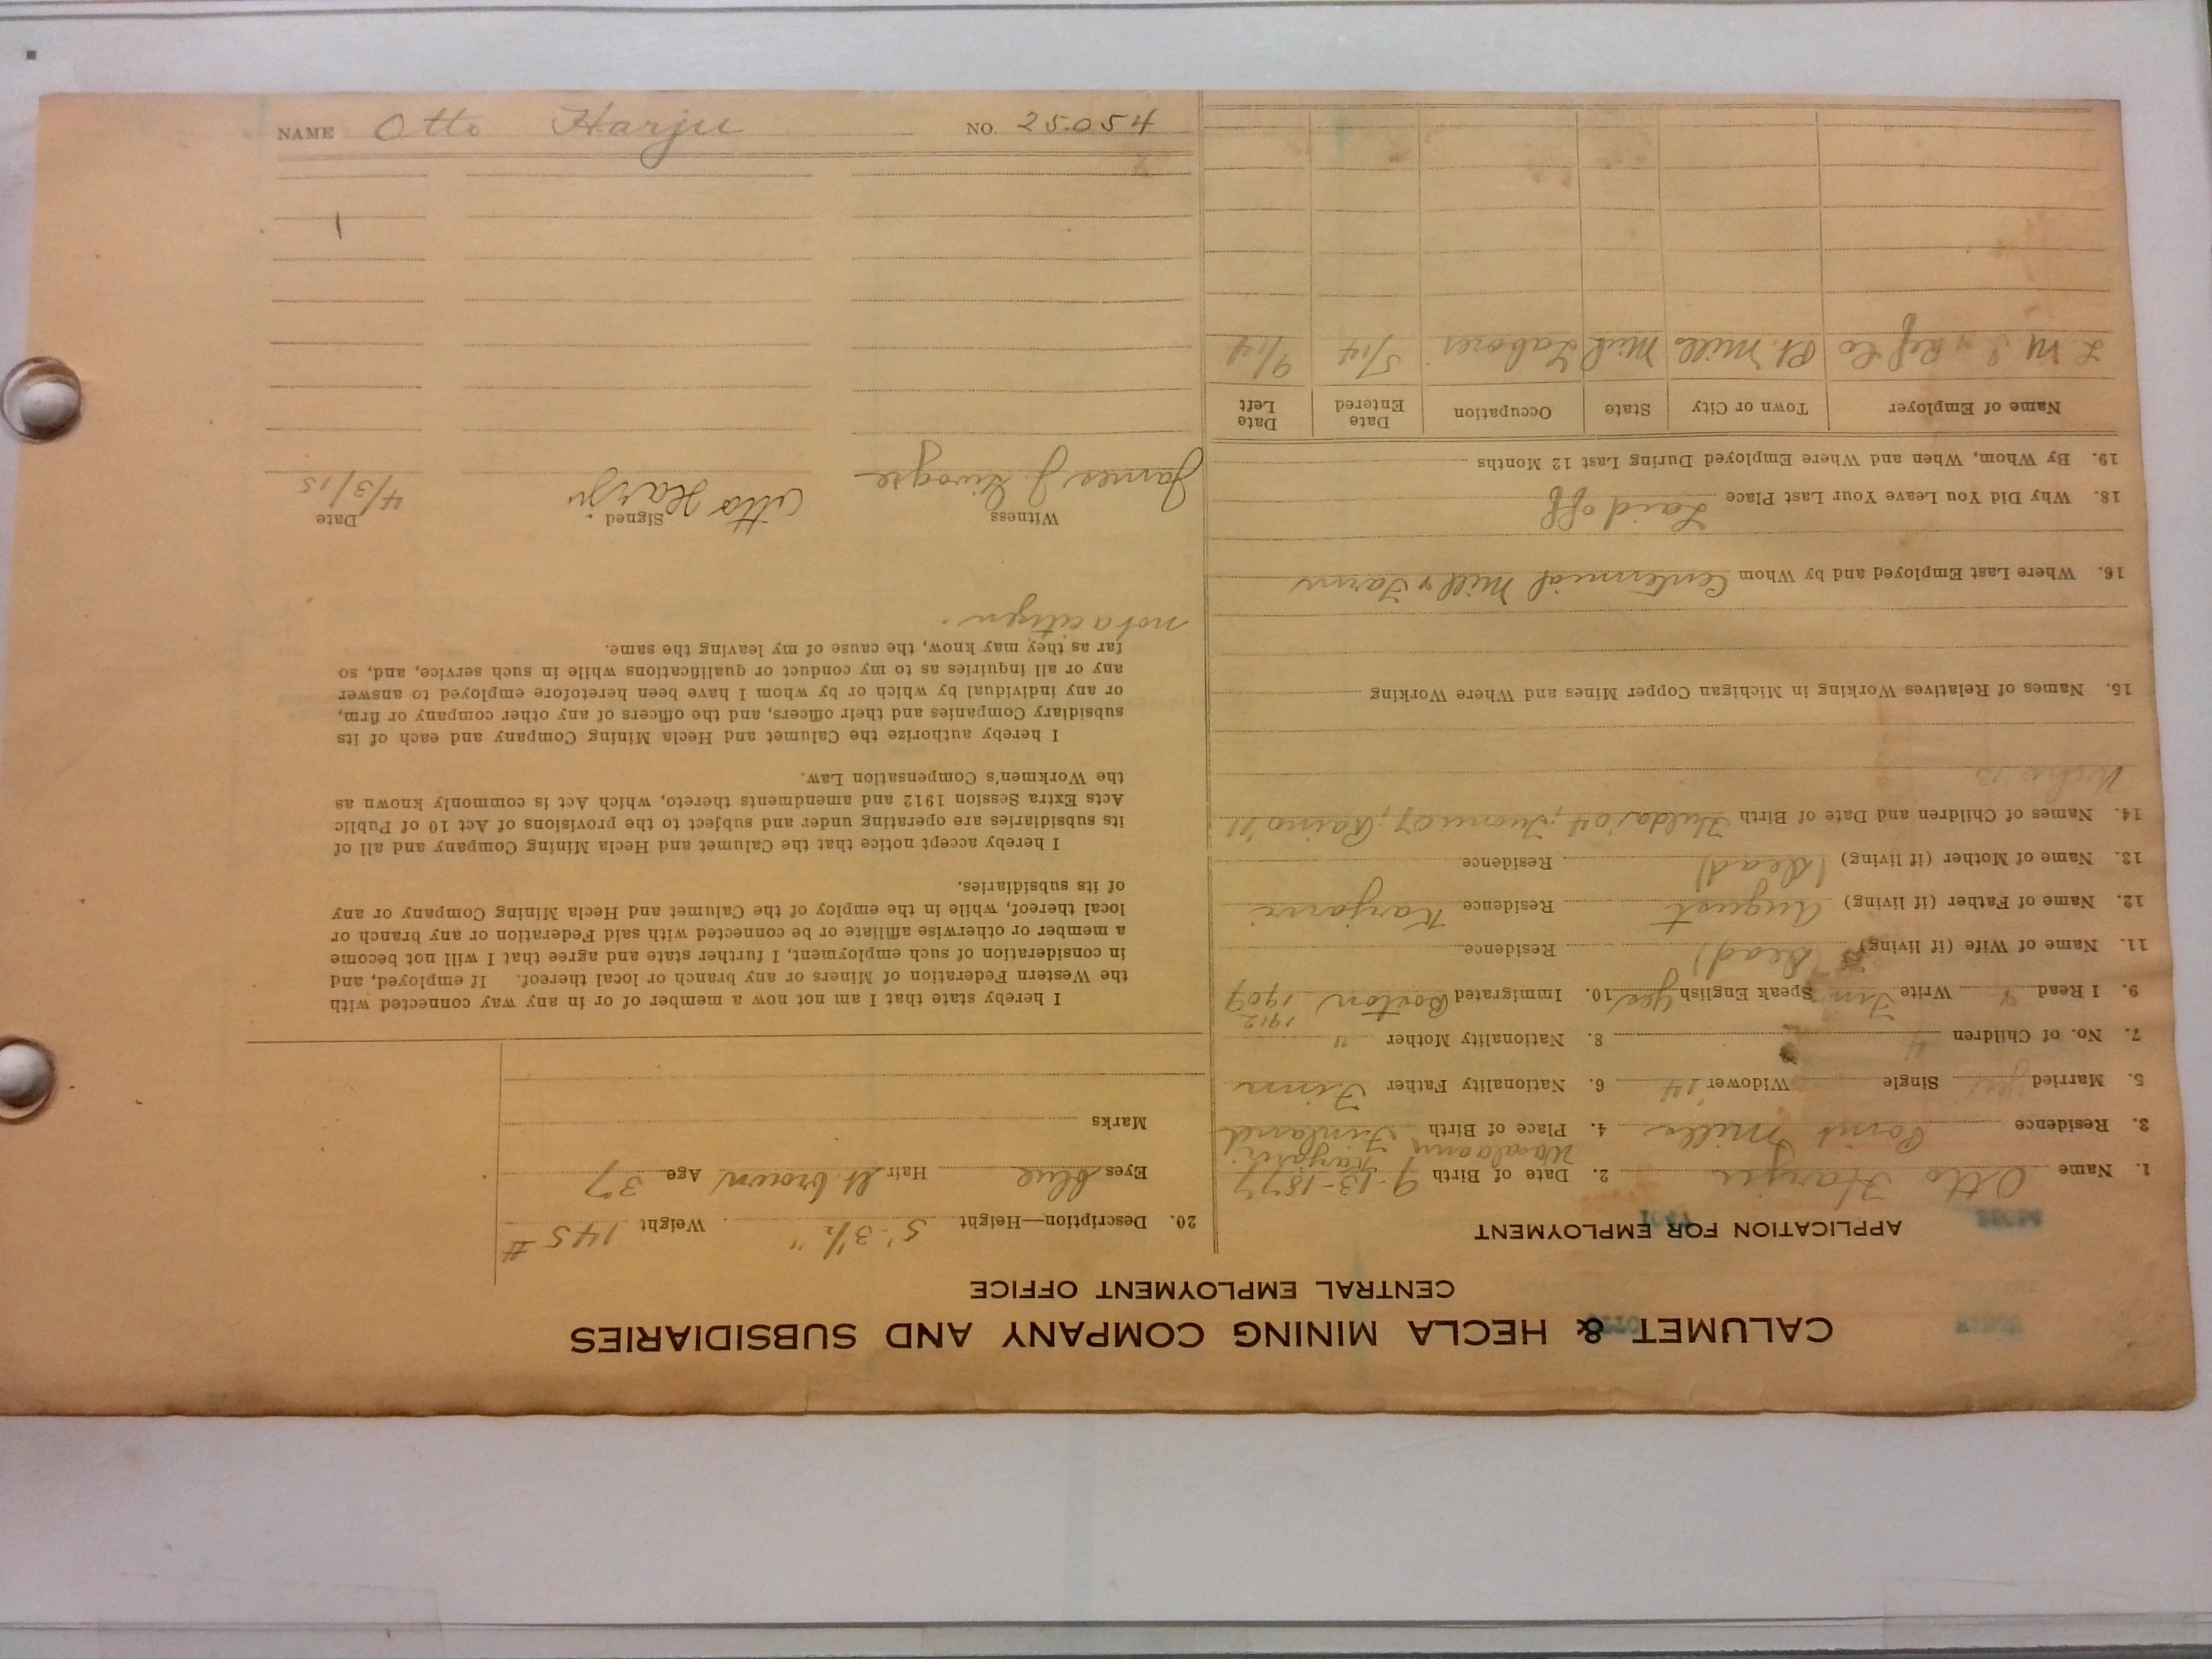 CALUMET & HECLA MINING COMPANY AND SUBSIDIARIES
CENTRAL EMPLOYMENT OFFICE
APPLICATION FOR EMPLOYMENT
1. Name Otto Harju 2. Date of Birth 9-13-1877
3. Residence Point Mills 4. Place of Birth Finland
5. Married Single Widower '14 6. Nationality Father Finn
7. No. of Children 4 8. Nationality Mother "
1912
9. I Read Write Finn Speak English yes 10. Immigrated Boston 1909
11. Name of Wife (if living) (Dead) Residence
12. Name of Father (if living) August Residence
13. Name of Mother (if living) (Dead) Residence
14. Names of Children and Date of Birth Hulda '04; '07; Raino '11
15. Names of Relatives Working in Michigan Copper Mines and Where Working
16. Where Last Employed and by Whom Centennial Mill & Farm
18. Why Did You Leave Your Last Place Laid off
19. By Whom, When and Where Employed During Last 12 Months
Name of Employer Town or City State Occupation Date Entered Date Left
L M S & Ref Co Pt. Mills Mich Laborer 5/14 9/14
20. Description—Height 5' 3 1/2" Weight 145 #
Eyes blue Hair lt. brown Age 37
Marks
I hereby state that I am not now a member of or in any way connected with
the Western Federation of Miners or any branch or local thereof. If employed, and
in consideration of such employment, I further state and agree that I will not become
a member or otherwise affiliate or be connected with said Federation or any branch or
local thereof, while in the employ of the Calumet and Hecla Mining Company or any
of its subsidiaries.
I hereby accept notice that the Calumet and Hecla Mining Company and all of
its subsidiaries are operating under and subject to the provisions of Act 10 of Public
Acts Extra Session 1912 and amendments thereto, which Act is commonly known as
the Workmen's Compensation Law.
I hereby authorize the Calumet and Hecla Mining Company and each of its
subsidiary Companies and their officers, and the officers of any other company or firm,
or any individual by which or by whom I have been heretofore employed to answer
any or all inquiries as to my conduct or qualifications while in such service, and, so
far as they may know, the cause of my leaving the same.
not a citizen.
Witness Signed Date
James J. Otto Harju 4/3/15
NAME Otto Harju NO. 25054